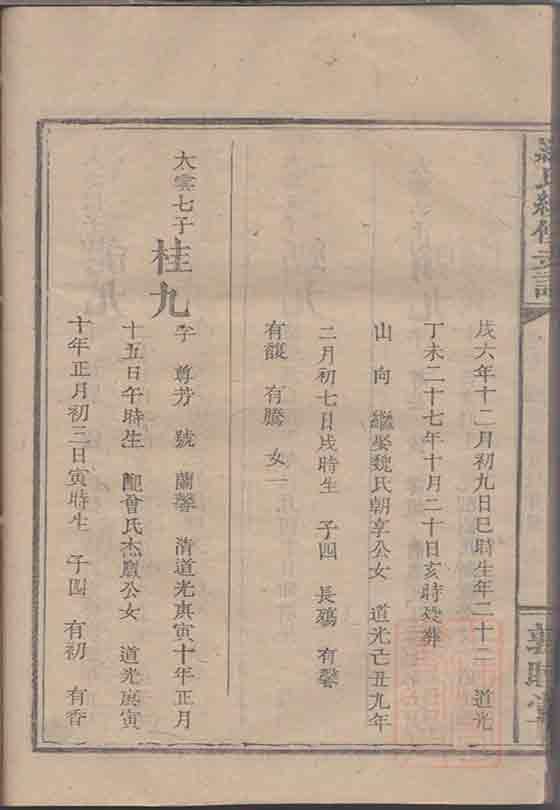 氏續修支譜
戊六年十二月初九日巳時生年二十二 道光
丁未二十七年十月二十日亥時歿葬
山 向 繼娶魏氏朝享公女 道光己丑九年
二月初七日戌時生 子四 長殤 有馨
有馥 有騰 女一
太雲七子 桂九
字 尊芳 號 蘭馨 清道光庚寅十年正月
十五日午時生 配曾氏杰鳳公女 道光庚寅
十年正月初三日寅時生 子四 有初 有香